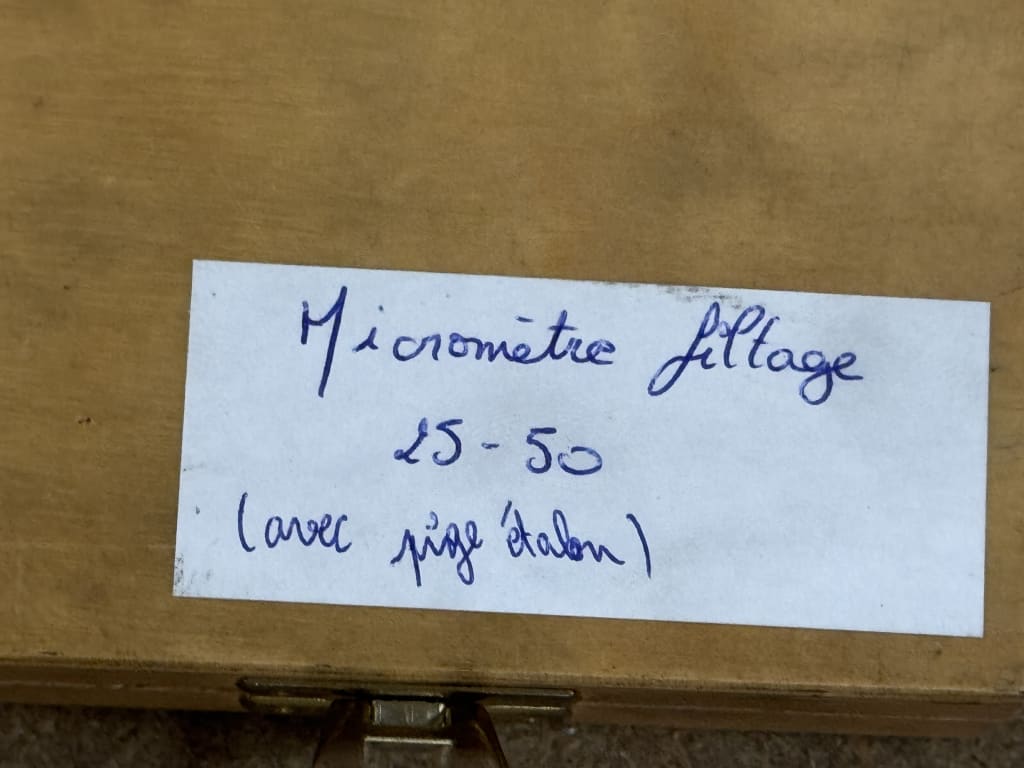 Micromètre filtage
25-50
(avec pige étalon)